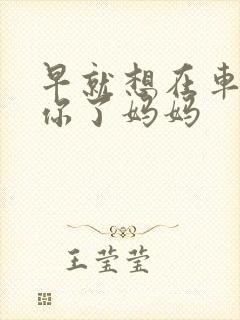 早就想在車
你了妈妈
王莹莹